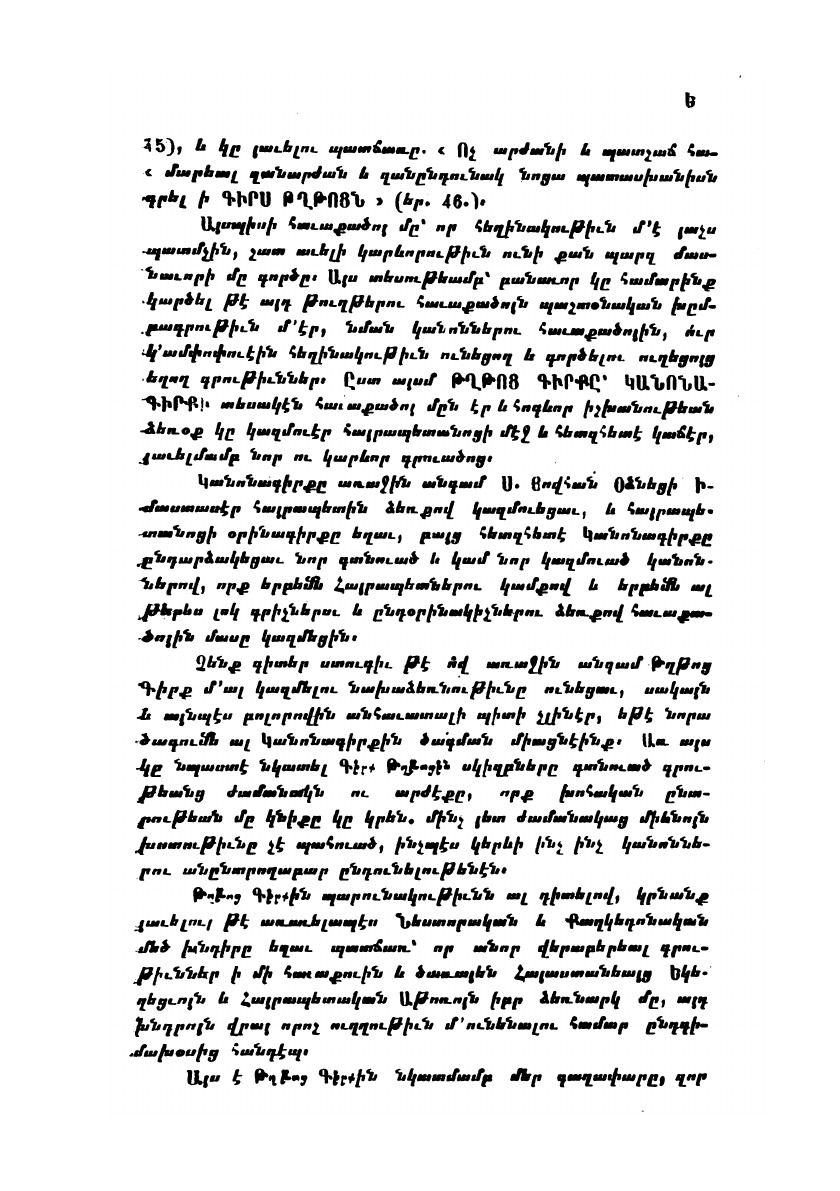 ե
45), և կը յաւելու պատճառը. « Ոչ արժանի և պատշաճ հա-
« մարեալ զանարժան և զանընդունակ նոցա պատասխանիսն
գրել ի ԳԻՐՍ ԹՂԹՈՅՆ » (եր. 46.)։
Այսպիսի հաւաքածոյ մը՝ որ հեղինակութիւն մ՚է յաչս
պատմչին, շատ աւելի կարևորութիւն ունի քան պարզ մաս-
նաւորի մը գործը։ Այս տեսութեամբ՝ բանաւոր կը համարինք
կարծել թէ այդ թուղթերու հաւաքածոյն պաշտօնական խըմ-
բագրութիւն մ՚էր, նման կանոններու հաւաքածոյին, ուր
կ՚ամփոփուէին հեղինակութիւն ունեցող և գործելու ուղեցոյց
եղող գրութիւններ։ Ըստ այսմ ԹՂԹՈՑ ԳԻՐՔԸ՝ ԿԱՆՈՆԱ-
ԳԻՐՔԻ տեսակէն հաւաքածոյ մըն էր և հոգևոր իշխանութեան
ձեռօք կը կազմուէր հայրապետանոցի մէջ և հետզհետէ կաճէր,
յաւելմամբ նոր ու կարևոր գրուածոց։
Կանոնագիրքը առաջին անգամ Ս. Յովհան Օձնեցի Ի-
մաստասէր հայրապետին ձեռքով կազմուեցաւ, և հայրապե-
տանոցի օրինագիրքը եղաւ, բայց հետզհետէ Կանոնագիրքը
ընդարձակեցաւ նոր գտնուած և կամ նոր կազմուած կանոն-
ներով, որք երբեմն Հայրապետներու կամքով և երբեմն ալ
թերևս լոկ գրիչներու և ընդօրինակիչներու ձեռքով հաւաքա-
ծոյին մասը կազմեցին։
Չենք գիտեր ստուգիւ թէ ո՛վ առաջին անգամ Թղթոց
Գիրք մ՚ալ կազմելու նախաձեռնութիւնը ունեցաւ, սակայն
և այնպէս բոլորովին անհաւատալի պիտի չլինէր, եթէ նորա
ծագումն ալ Կանոնագիրքին ծագման միացնէինք։ Առ այս
կը նպաստէ նկատել Գիրք Թղթոցին սկիզբները գտնուած գրու-
թեանց ժամանակն ու արժէքը, որք խոհական ընտ-
րութեան մը կնիքը կը կրեն. մինչ յետ ժամանակաց միևնոյն
խստութիւնը չէ պահուած, ինչպէս կերևի ինչ ինչ կանոննե-
րու անընտրողաբար ընդունելութենէն։
Թղթոց Գիրքին պարունակութիւնն ալ դիտելով, կրնանք
յաւելուլ թէ առաւելապէս Նեստորական և Քաղկեդոնական
մեծ խնդիրը եղաւ պատճառ՝ որ անոր վերաբերեալ գրու-
թիւններ ի մի հաւաքուին և ծառայեն Հայաստանեայց Եկե-
ղեցւոյն և Հայրապետական Աթոռոյն իբր ձեռնարկ մը, այդ
խնդրոյն վրայ որոշ ուղղութիւն մ՚ունենալու համար ընդդի-
մախօսից հանդէպ։
Այս է Թղթոց Գիրքին նկատմամբ մեր գաղափարը, զոր